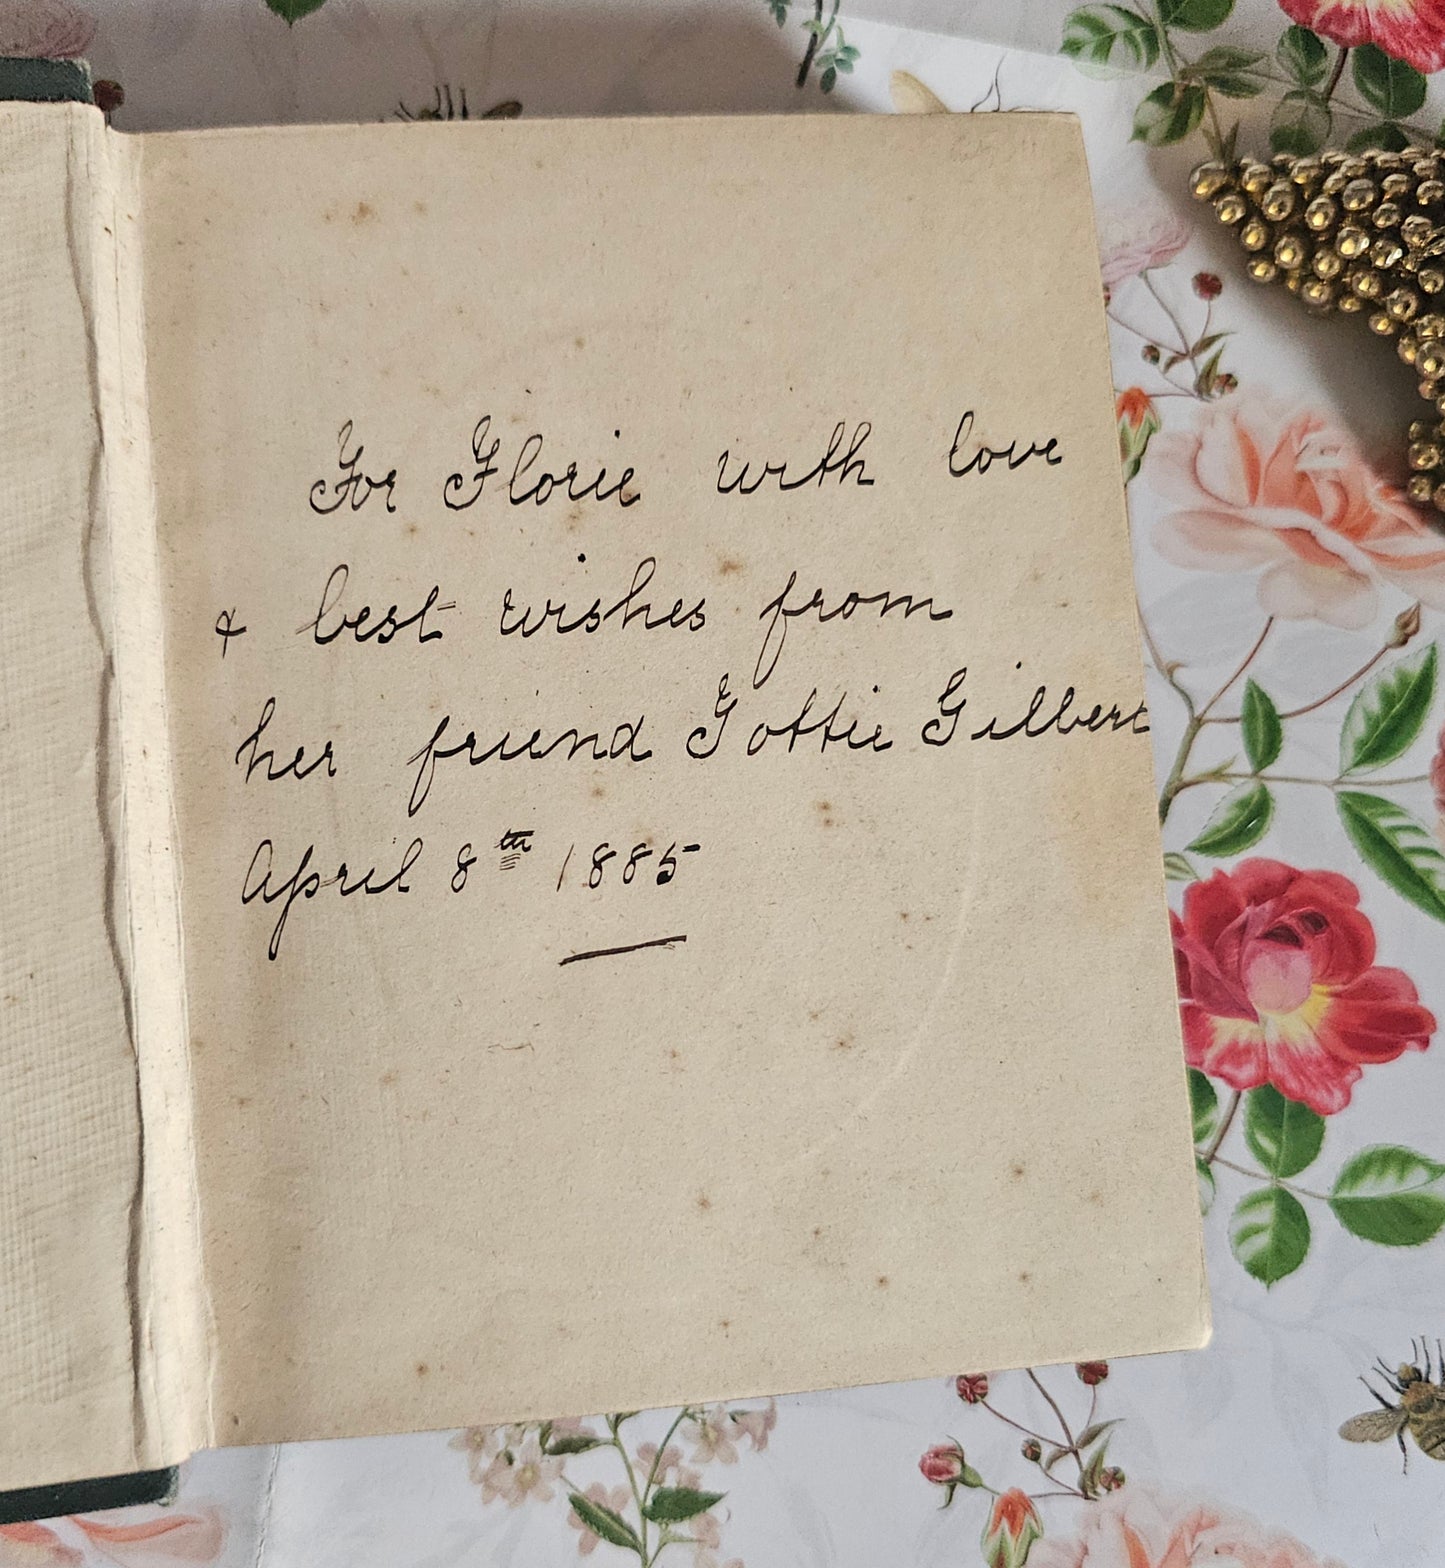 For Florie with love
& best wishes from
her friend Tottie Gilbert
April 8th 1885